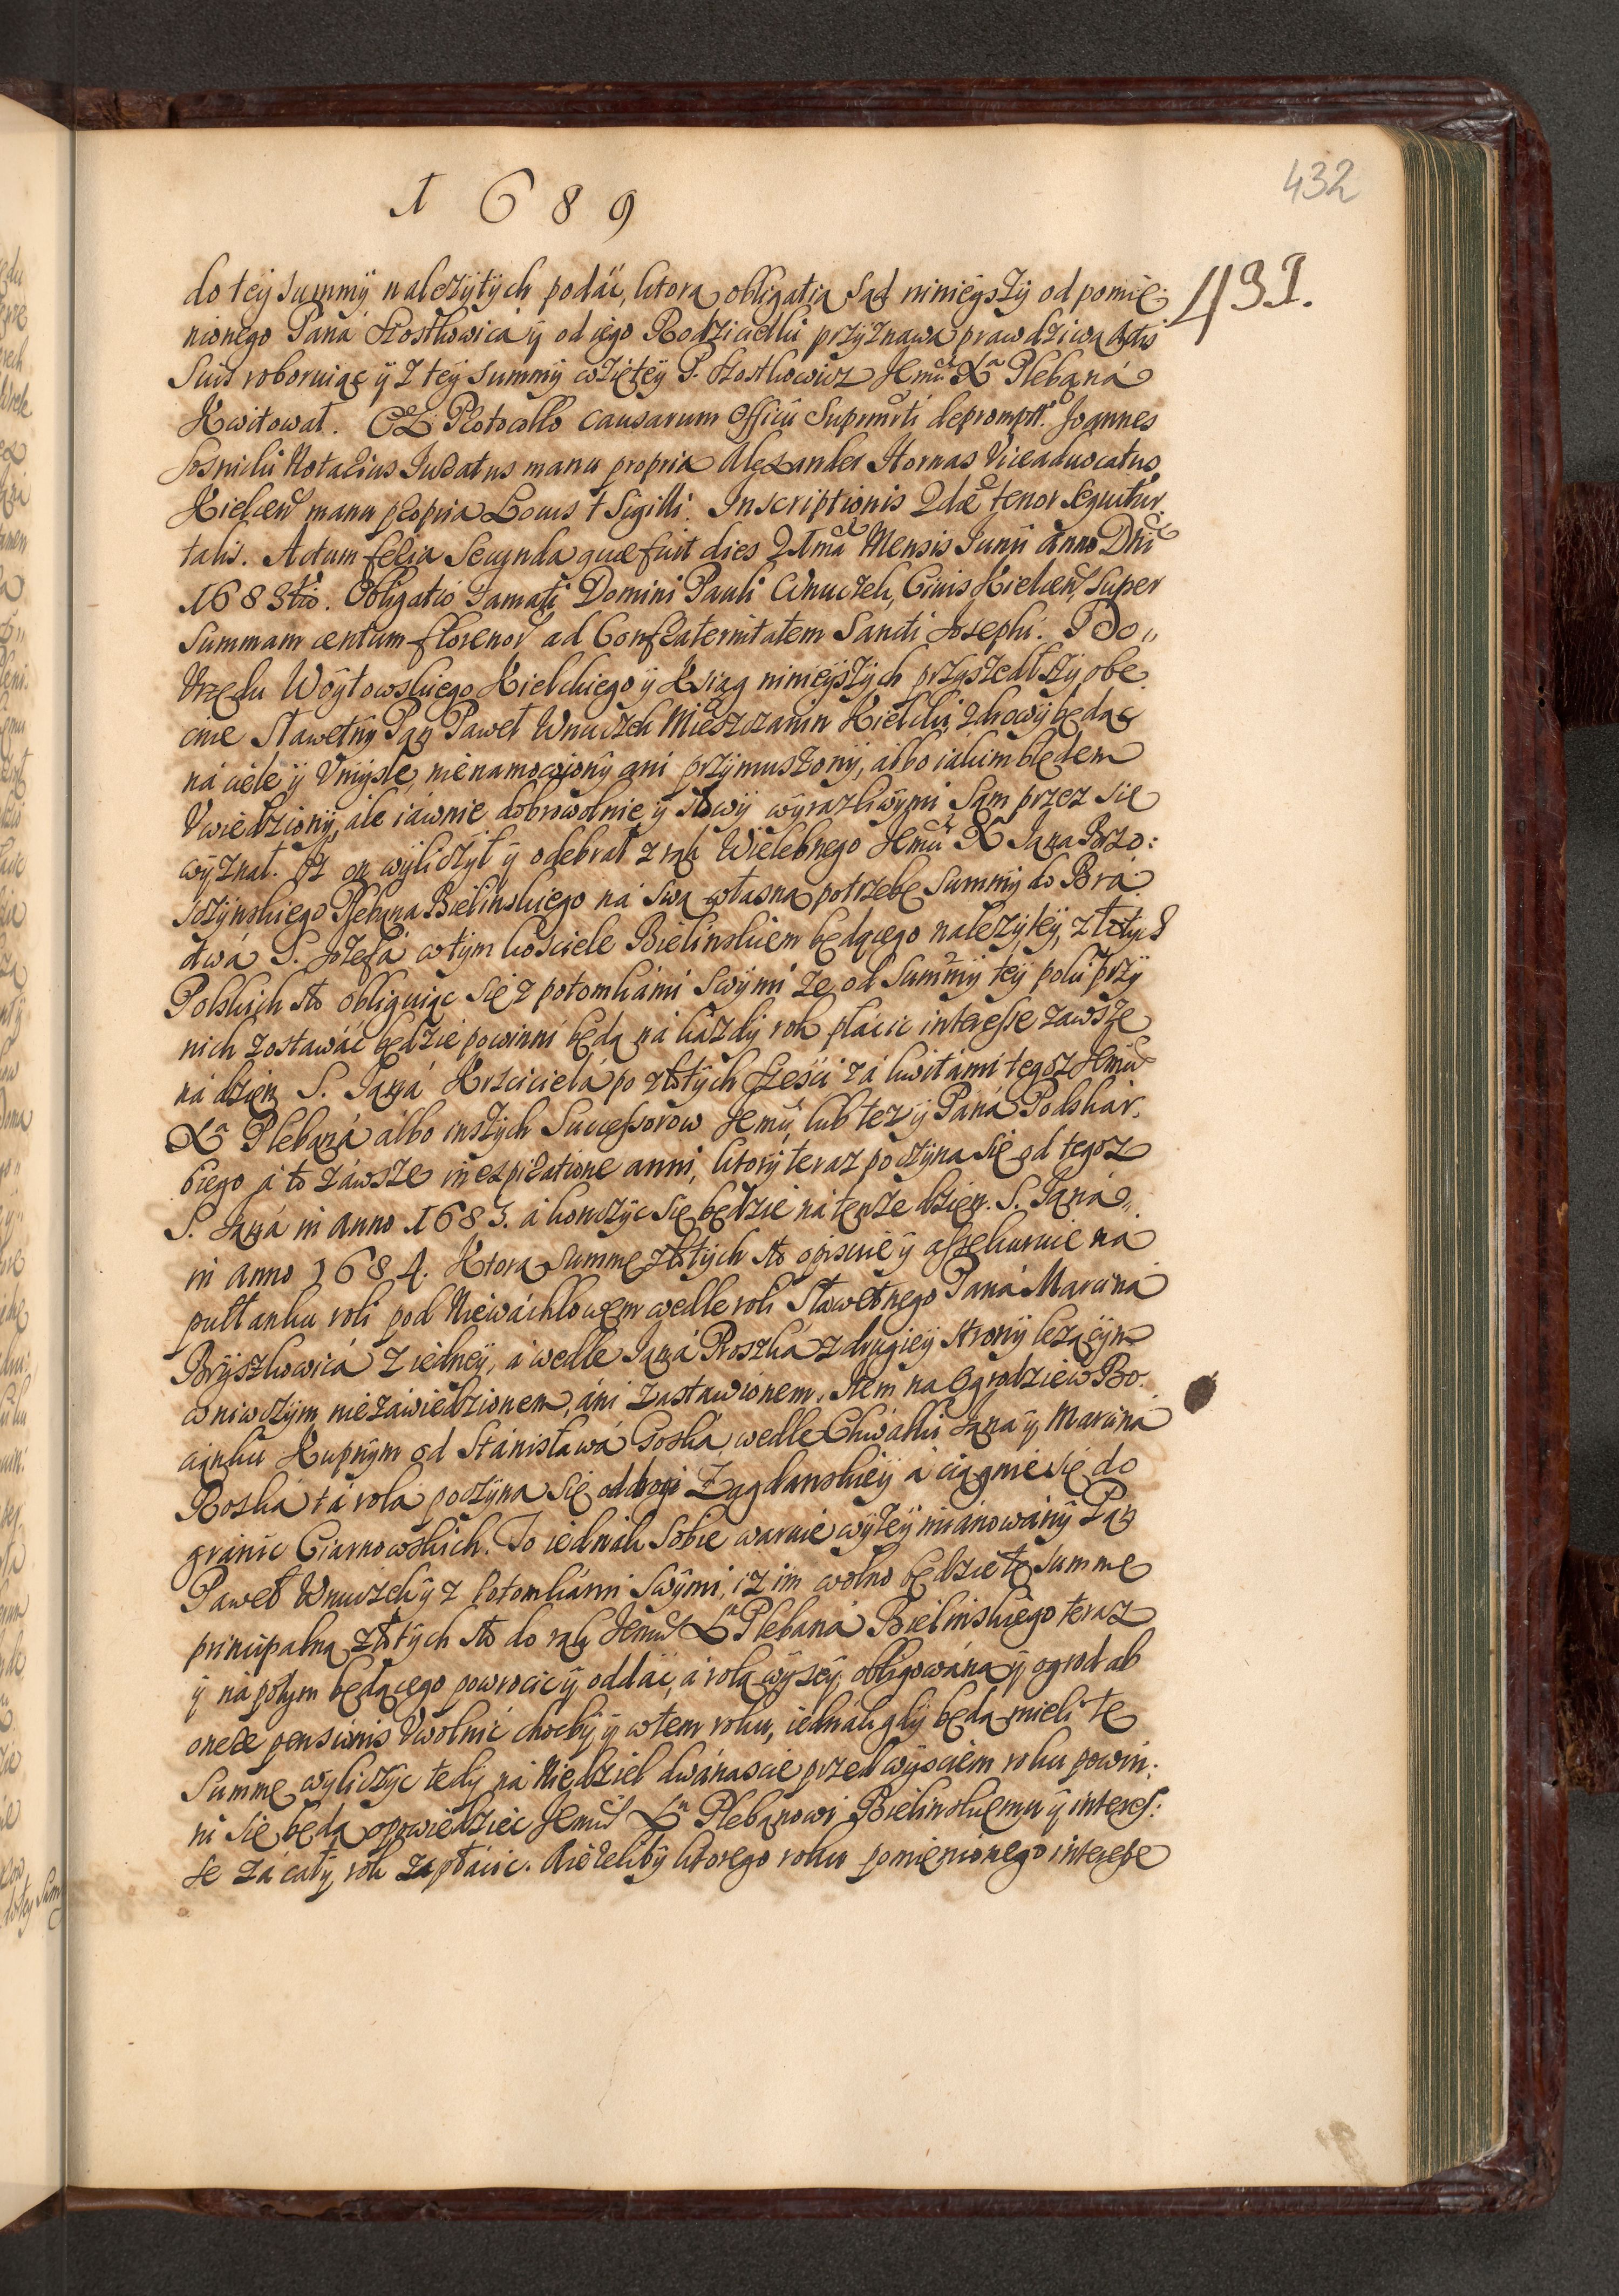 432
1689
431.
do tey summÿ należÿtÿch podáć, ktora obligatią Sąd ninieyszÿ od pomie:
nionego Páná Kostkowicá ÿ od iego Rodzicielki przÿznawa prawdziwą Actis
Suis roboruiąc ÿ z teÿ summÿ wziętey P. Kostkowicz Jemci Xa Plebaná
Kwitował. Ex Protocollo causarum Officÿ Suprmrti deprompt. Joannes
Sosnicki Notarius Juratus manu propria Alexander Hornas Viceadvocatus
Kielcen manu propria Locus + Sigilli. Inscriptionis 2dæ tenor sequitur
talis. Actum feria Secunda quæ fuit dies 21ma Mensis Junÿ Anno Dni
1683tio. Obligatio Famati Domini Pauli Wnuczek, Civis Kielcen, Super
Summam centum florenor ad Confraternitatem Sancti Josephi. Do
Vrzędu Woÿtowskiego Kielckiego ÿ Xiąg ninieyszÿch przyszedłszÿ obe
cnie Sławetnÿ Pan Paweł Wnuczek Mieszczanin Kielcki, zdrowÿ będąc
ná ciele ÿ Vmÿsle, nienamowionÿ ani przÿmuszonÿ, albo iakim błędem
Vwiedzionÿ, ále iáwnie dobrowolnie ÿ słowÿ wÿrazliwÿmi Sam przez się
wÿznał. Iż on wÿliczÿł ÿ odebrał z rąk Wielebnego Jemci X Jana Brzo:
szÿnskiego Plebana Bielinskiego ná swą własną potrzebę Summÿ do Brá
ctwá S. Jozefá w tÿm kościele Bielinskiem będącego należÿteÿ, złotÿch
Polskich sto obliguiąc się z potomkámi swÿmi że od Summÿ teÿ poki przÿ
nich zostáwáć będzie powinni będą ná káżdÿ rok płácic interesse záwsze
ná dzien S. Janá Krzcicielá po złotÿch sześci zá kwitámi tegosz Jemci
Xa Plebaná álbo inszÿch Successorow Jemci, lub też ÿ Páná Podskár
biego á to záwsze in expiratione anni, ktorÿ teraz poczÿna się od tegosz
S. Janá in anno 1683. á konczÿc się będzie ná tenże dzien. S. Janá
in anno 1684. Ktorą Summę złotÿch sto opisuie ÿ assekuruie ná
pułłanku roli pod Niewáchlowem wedle roli Słáwetnego Páná Marciná
Brÿszkowicá z iedneÿ, á wedle Janá Roszká z drugieÿ stronÿ leżącÿm
w niwczÿm niezáwiedzionem, áni zástáwionem. Item na Ogrodzie w Bo
cianku Kupnÿm od Stánisłáwá Goská, wedle Chwałki Jana ÿ Marciná
Roská tá rola poczÿna się od drogi Zagdanskieÿ á ciągnie się do
gránic Czarnowskich. To iednák sobie waruie wÿżeÿ miánowánÿ Pan
Paweł Wnuczek ÿ z Potomkámi Swÿmi, iż im wolno będzie tę summę
principalną złotÿch sto do rąk Jemci Xa Plebaná Bielinskiego teraz
ÿ ná potÿm będącego powrocic ÿ oddáć, á rolą wÿżeÿ obligowána ÿ ogrod ab
onere pensionis Vwolnić chocbÿ ÿ w tem roku, iednák gdÿ będą mieli tę
Summę wÿliczÿc tedÿ ná Niedziel dwánascie przed wÿsciem roku powin:
ni się będą opowiedziec Jemci Xu Plebanowi Bielinskiemu ÿ interes:
se zá cáłÿ rok zápłácic. Ániżelibÿ ktorego roku pomienionego interesse